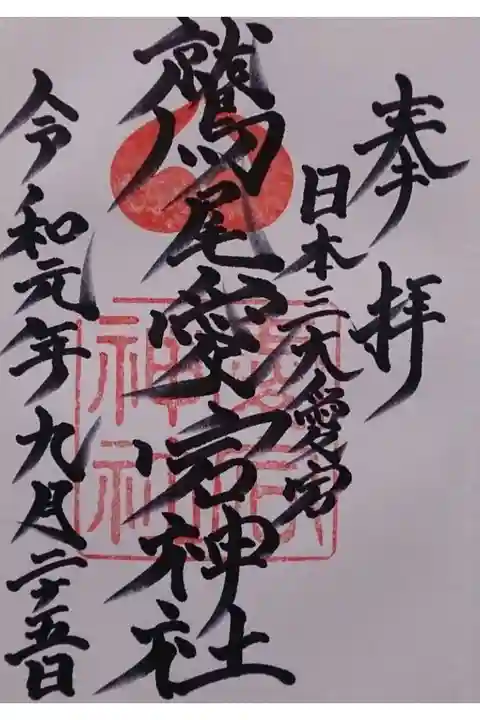 奉拝
日本三大愛宕
鷲尾愛宕神社
令和元年九月二十五日
愛宕神社